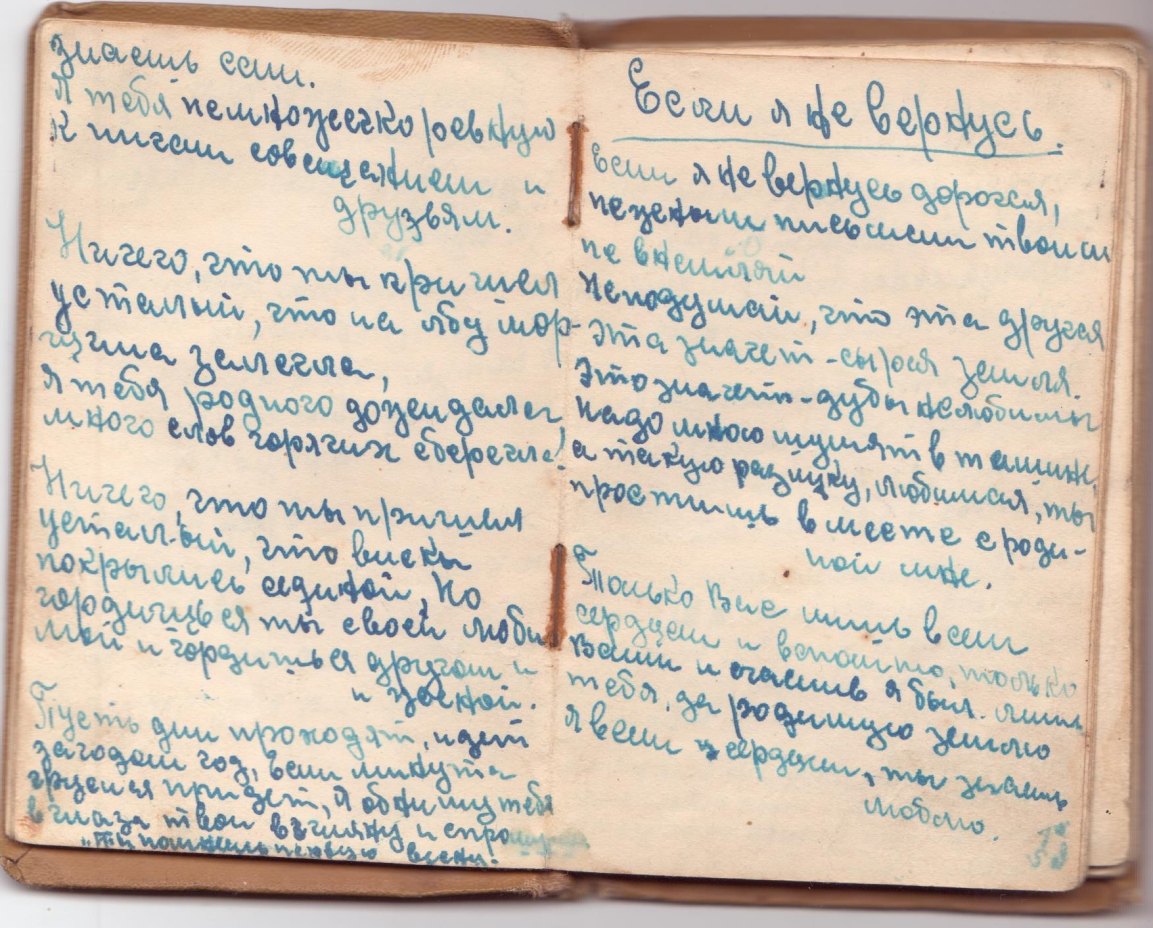 знаешь сам.
Я тебя немножечко ревную
к ночам совещением и
друзьям.
Ничего, что ты пришел
усталый, что на лбу мор-
щина залегла,
я тебя родного дожидалась
много слов горячих сберегла!
Ничего, что ты пришел
усталый, что виски
покрылись сединой, Но
гордишься ты своей люби
мой и гордишься другом и
и женой.
Пусть дни проходят, идет
за годом год, если минута
грусная придет, я обниму тебя
в глаза твои възгляну и спрошу
"Ты помнишь первую весну.
Если я не вернусь.
Если я не вернусь дорогая,
нежным письмам твоим
не внемляй
Неподумай, что эта другая
Эта значет-сырая земля.
Это значеть-дубы нелюбимы
надо мною шумят в тишине,
а такую разлуку, любимая, ты
простишь вместе с роди-
ной мне.
Только Вас лишь всем
сердцем и вспомню, только
Вами и счастлив я был. лишь
тебя, да родимую землю
я всем сердцем, ты знаешь
любмю.